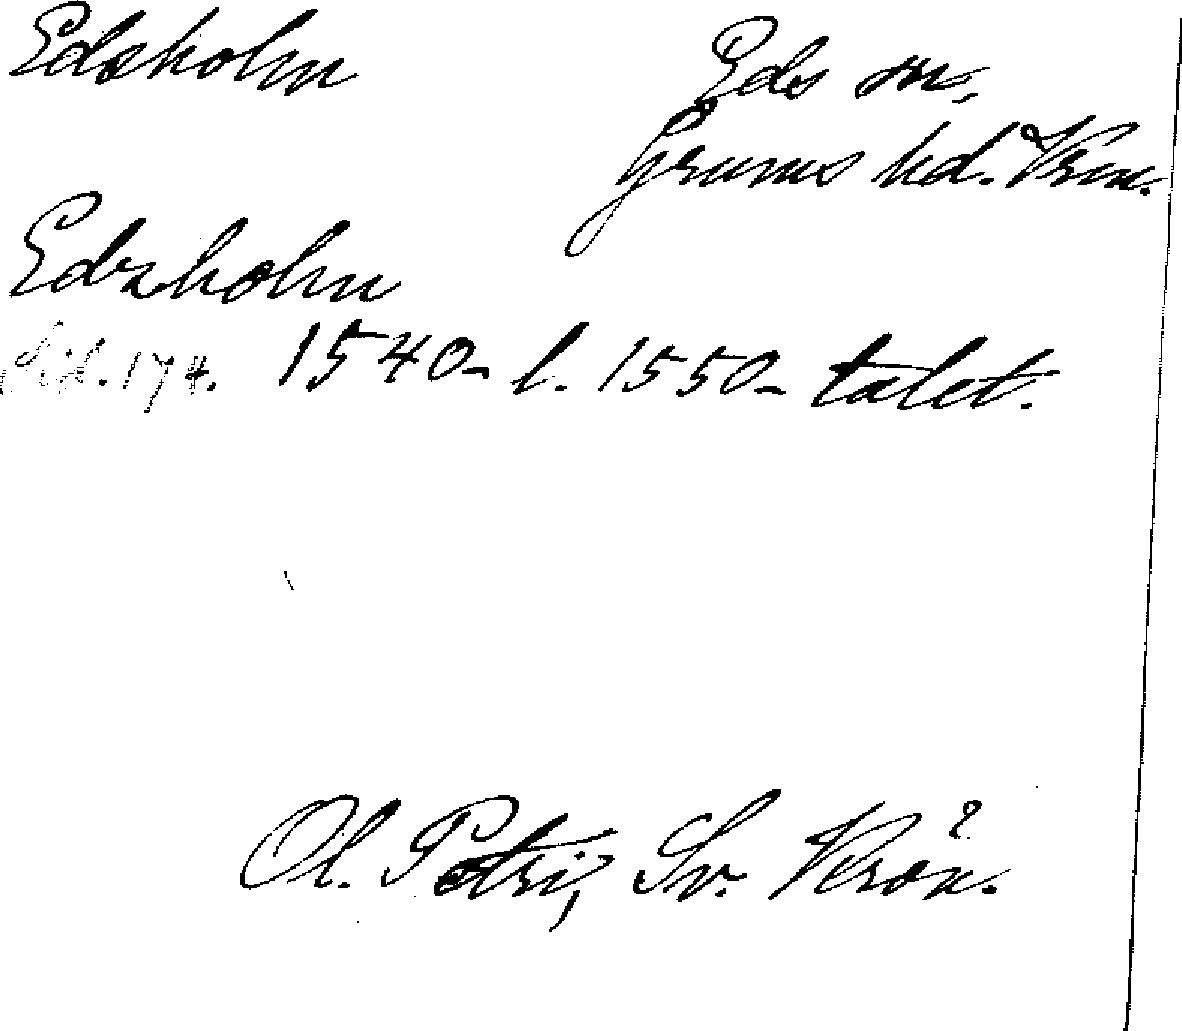 Edsholm
Eds sn,
Grums hd. Vrm.
Edzholm
Sid. 174. 1540- l. 1550-talet.
Ol. Petri, Sv. Krön.²